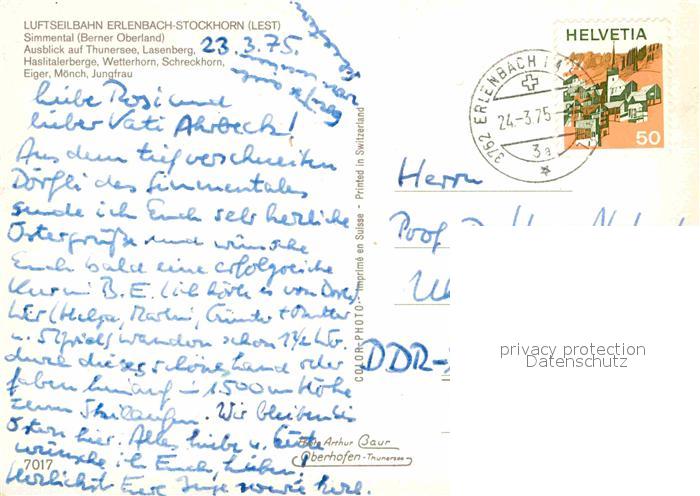 LUFTSEILBAHN ERLENBACH-STOCKHORN (LEST)
Simmental (Berner Oberland)
Ausblick auf Thunersee, Lasenberg,
Haslitalerberge, Wetterhorn, Schreckhorn,
Eiger, Mönch, Jungfrau
23.3.75.
Liebe Rosi und
lieber Vati Ahrbeck!
Aus dem tief verschneiten
Dörfli des Simmentales
sende ich Euch sehr herzliche
Ostergrüße und wünsche
Euch bald eine erfolgreiche
Kur in B.E. (ich hörte es von
Wir (Helga, Günter + Mutter
u. wandern schon 1½ Wo.
durch dieses schöne Land oder
fahren hinauf in 1500 m Höhe
zum Skilaufen. Wir bleiben bis
Ostern hier. Alles Liebe u. Gute
wünsche ich Euch Lieben!
Herzlichst Eure Inge sowie
7017
COLOR-PHOTO - Imprimé en Suisse - Printed in Switzerland
Photo Arthur Baur
Oberhofen-Thunersee
HELVETIA
50
3762 ERLENBACH I
24.-3.75
3a
Herrn
Prof. D.
DDR-
privacy protection
Datenschutz